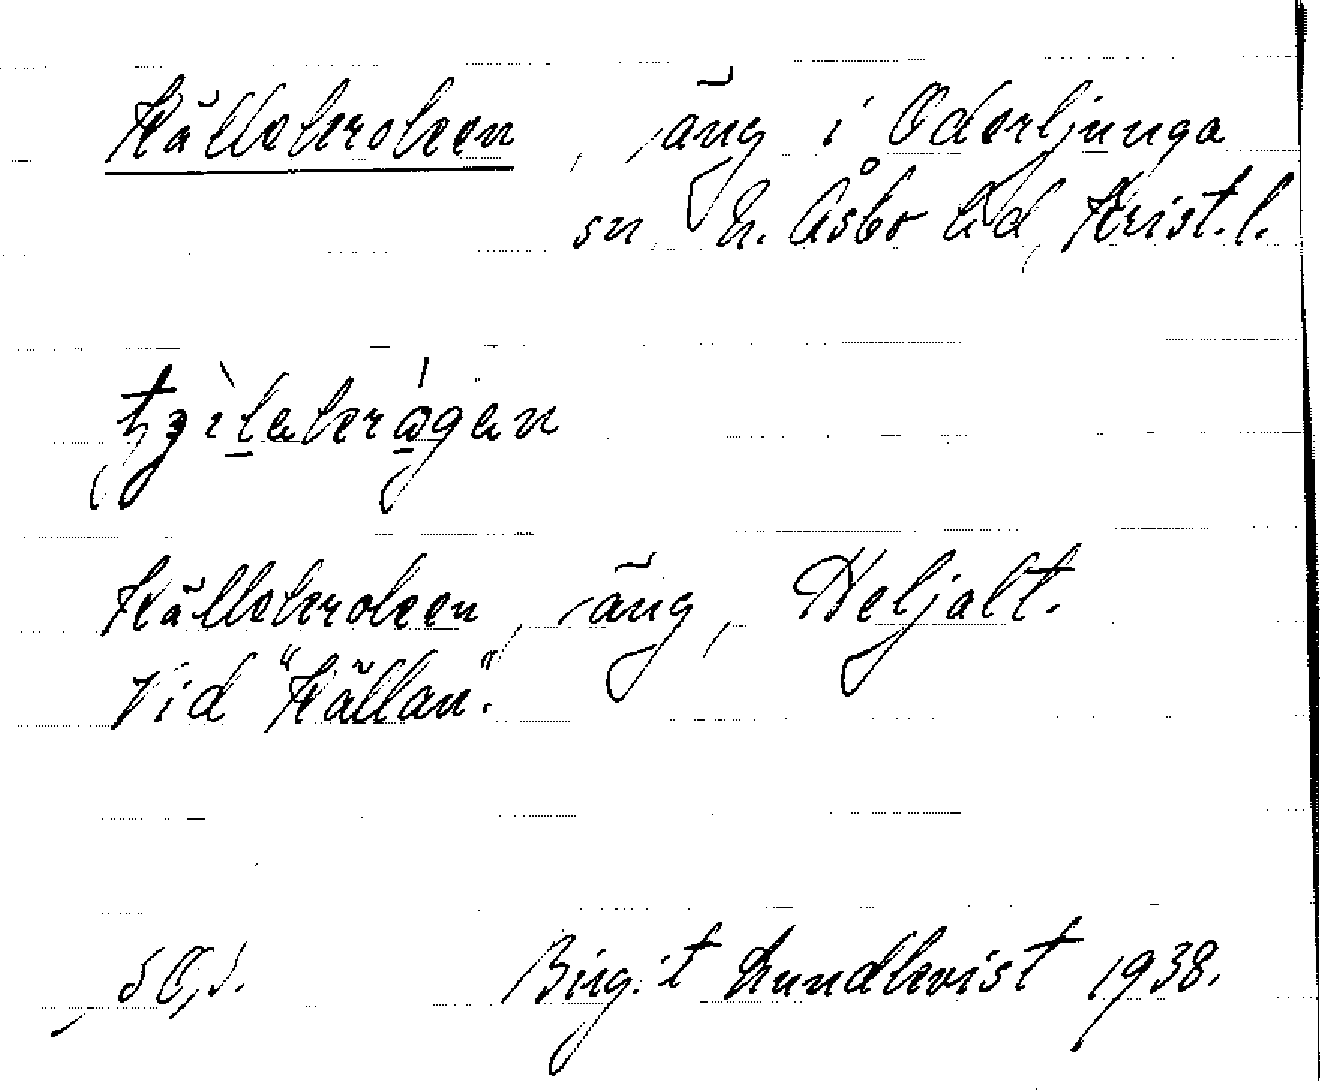 Källekroken, äng i Oderljunga
sn N. Åsbo hd, Krist. l.
Källekroken, äng, Heljalt.
Vid "Källan".
Birgit Lundkvist 1938.